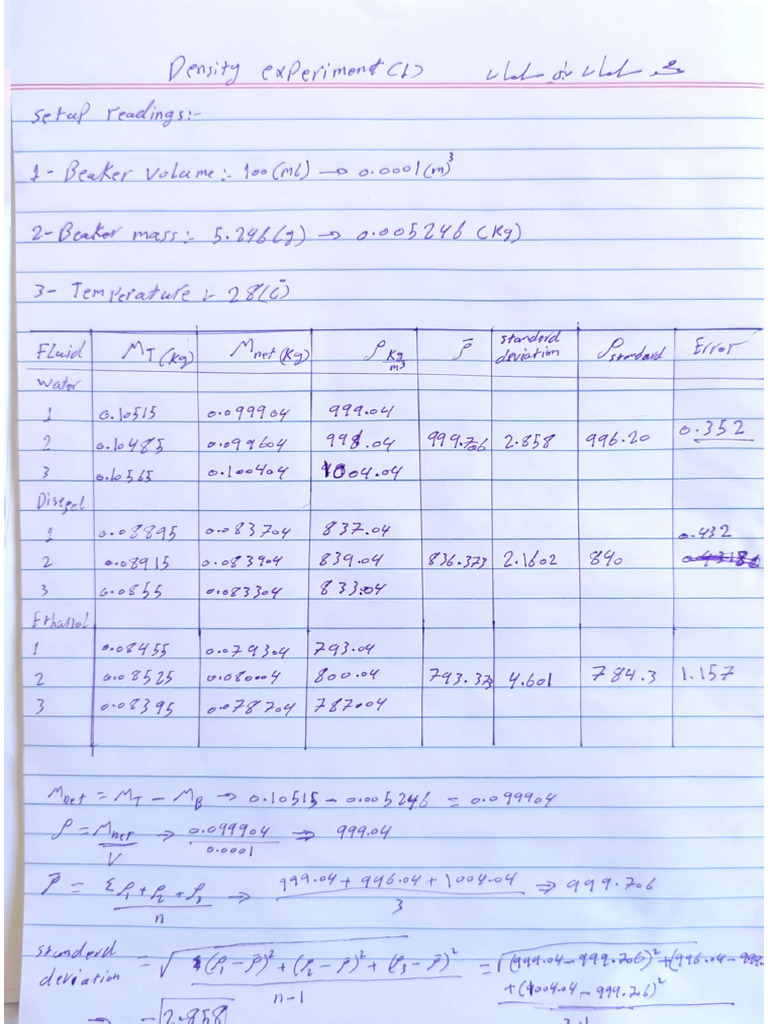 Density experiment (1)
Setup readings:-
1- Beaker volume:- 100 (ml) → 0.0001 (m³)
2- Beaker mass:- 5.246 (g) → 0.005246 (Kg)
3- Temperature :- 28 (C°)
Fluid M_T (Kg) M_net (Kg) ρ Kg/m³ ρ̄ standerd deviation ρ_standard Error
Water
1 0.10515 0.099904 999.04
2 0.10485 0.099604 996.04 999.706 2.858 996.20 0.352
3 0.10565 0.100404 1004.04
1 0.08895 0.083704 837.04 0.432
2 0.08915 0.083904 839.04 836.373 2.1602 840
3 0.0855 0.083304 833.04
Ethanol
1 0.08455 0.079304 793.04
2 0.08525 0.080004 800.04 793.373 4.601 784.3 1.157
3 0.08395 0.078704 787.04
M_net = M_T - M_B → 0.10515 - 0.005246 = 0.099904
ρ = M_net / V → 0.099904 / 0.0001 ⇒ 999.04
ρ̄ = Σ ρ₁ + ρ₂ + ρ₃ / n → 999.04 + 996.04 + 1004.04 / 3 ⇒ 999.706
standerd deviation = √ (ρ₁ - ρ̄)² + (ρ₂ - ρ̄)² + (ρ₃ - ρ̄)² / n-1 = √ (999.04 - 999.706)² + (996.04 - 999.
+ (1004.04 - 999.706)²
⇒ √2.858